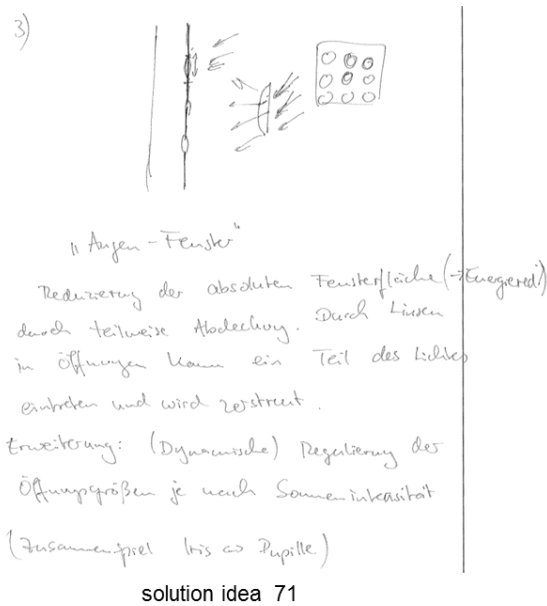 3)
„Augen-Fenster"
Reduzierung der absoluten Fensterfläche (→Energiered.)
durch teilweise Abdeckung. Durch Linsen
in Öffnungen kann ein Teil des Lichtes
eintreten und wird zerstreut.
Erweiterung: (Dynamische) Regulierung der
Öffnungsgrößen je nach Sonnenintensität
(Zusammenspiel Iris ↔ Pupille)
solution idea 71